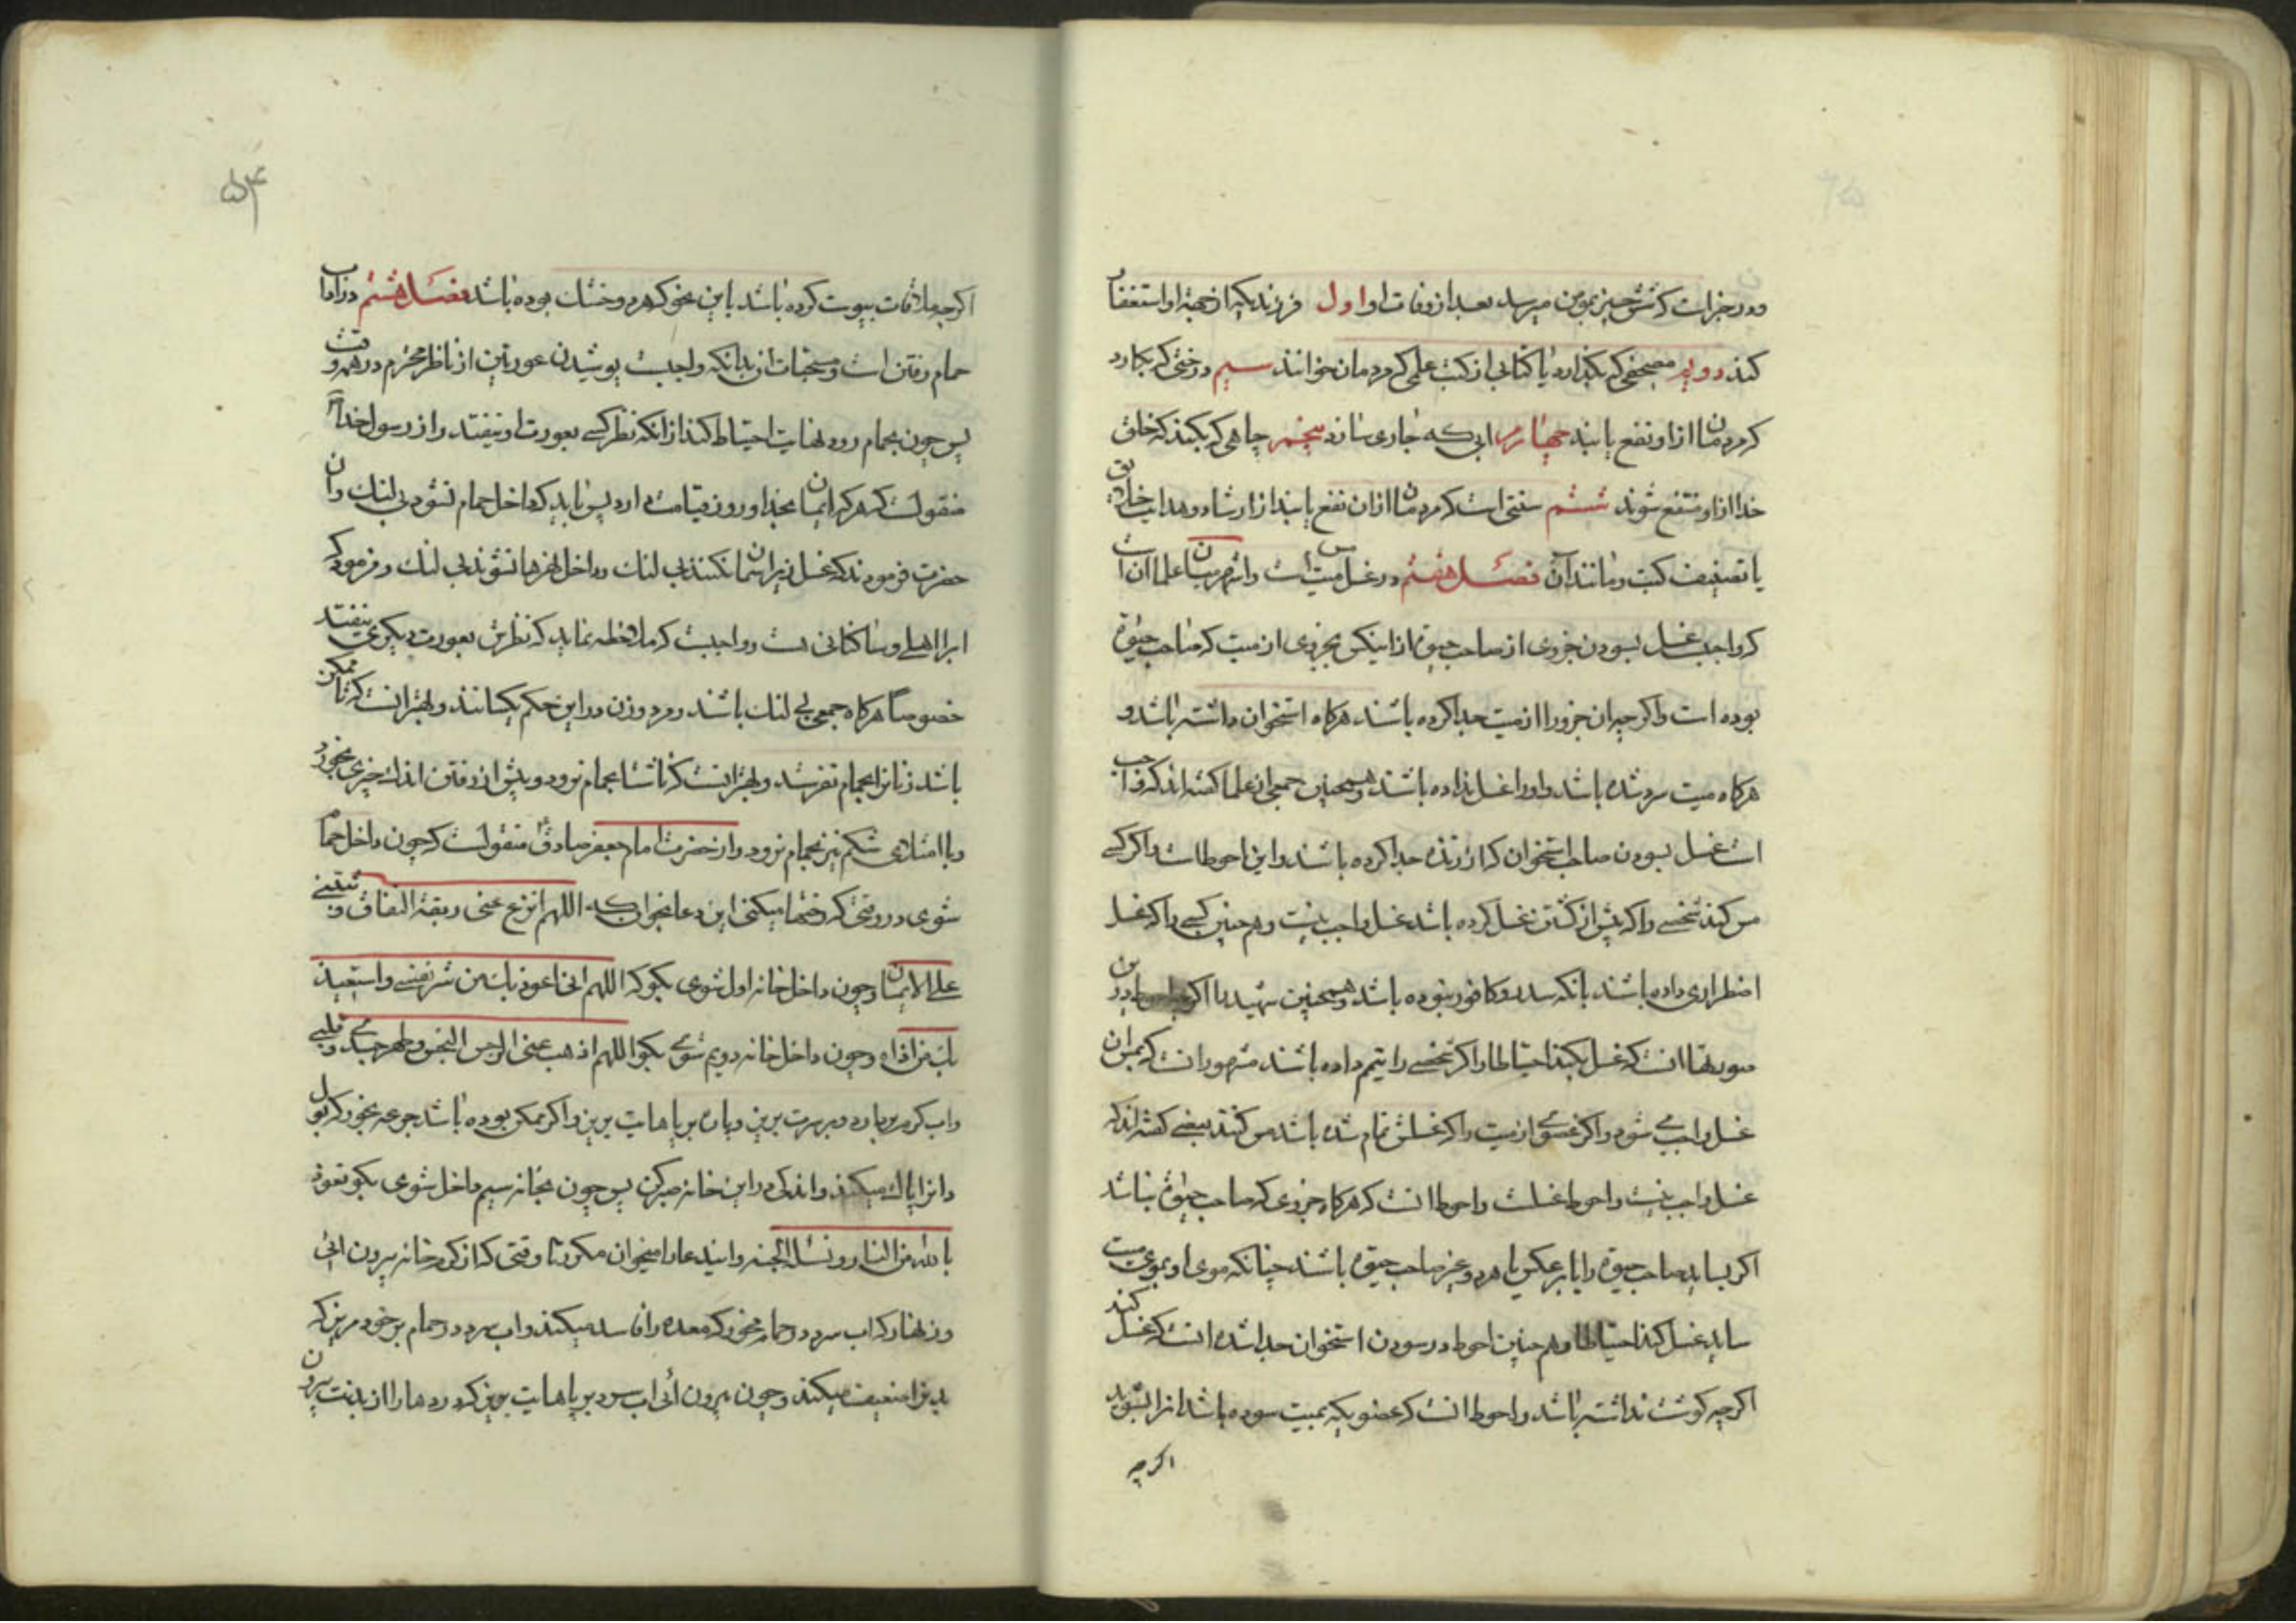 ودر خبرست که شش چیز بمؤمن میرسد بعد از وفات او اول فرزندیکه از جهة او استغفار
کند دویم مصحفی که بگذارد یا کتابی از کتب علمی که مردمان خوانند سیم درختی که بکارد
که مردمان از او نفع یابند چهارم ابی که جاری سازد پنجم چاهی که بکند که خلق
خدا از او منتفع شوند ششم سنتی است که مردمان از ان نفع یابند از ارشاد و هدایت خلایق
یا تصنیف کتب و مانند آن فصل هفتم در غسل مس میت است واشهر میان علما ان است
که واجبست غسل بسودن جزوی از صاحب حیوة از اینکس بجزوی از میت که صاحب حیوة
بوده است واکرچه ان جزو را از میت جدا کرده باشند هرکاه استخوان داشته باشد و
هرکاه میت سرد شده باشد واو را غسل نداده باشند وهمچنین جمعی از علما کفته اند که واجب
است غسل بسودن صاحب استخوان که از زنده جدا کرده باشند واین احوط است واکر کسی
مس کند شخصی را که پیش از کشتن غسل کرده باشد غسل واجب نیست وهم چنین کسی را که غسل
اضطراری داده باشند بانکه سدر وکافور نبوده باشد وهمچنین شهید را اکرچه احوط در این
صورتها انست که غسل بکند احتیاطا واکر شخصی را تیمم داده باشند مشهور انست که بمس ان
غسل واجب می شود واکر عضوی از میت را که غسلش تمام شده باشد مس کند بعضی کفته اند که
غسل واجب نیست واحوط غسلست واحوط انست که هرکاه جزوی که صاحب حیوة نباشد
اکر بساید صاحب حیوة را یا بر عکس یا هر دو غیر صاحب حیوة باشند چنانکه موی او بموی میت
ساید غسل کند احتیاطا وهم چنین احوط در سودن استخوان جدا شده انست که غسل کند
اکرچه کوشت نداشته باشد واحوط انست که عضویکه بمیت سوده باشد انرا بشوید
اکرچه
۵۴
اکرچه ملاقات بیبوست کرده باشد باین نحو که هر دو خشک بوده باشد فصل هشتم در اداب
حمام رفتن است ومستحبات ان بدانکه واجبست پوشیدن عورتین از ناظر محرم در همه وقت
پس چون بحمام رود نهایت احتیاط کند از انکه نظر کسی بعورت او نیفتد واز رسول خدا
منقولست که هر که ایمان بخدا و روز قیامت دارد پس باید که داخل حمام نشود بی لنک وان
حضرت فرمودند که غسل زیر اسمان نکنند بی لنک و داخل نهرها نشوند بی لنک و فرمود که
ابرا اهلی و ساکنانی هست و واجبست که ملاحظه نماید که نظرش بعورت دیکری نیفتد
خصوصا هرکاه جمعی بی لنک باشند و مرد وزن در این حکم یکسانند وبهتر انست که تا ممکن
باشد زنانرا بحمام نفرستد وبهتر انست که ناشتا بحمام نرود و پیش از رفتن اندک چیزی بخورد
وبا امتلای شکم نیز بحمام نرود واز حضرت امام جعفر صادق منقولست که چون داخل حمام
شوی در وقتی که رختها میکنی این دعا بخوان که اللهم انزع عنی ربقة النفاق وثبتنی
علی الایمان وچون داخل خانه اول شوی بکو که اللهم انی اعوذ بک من شر نفسی واستعیذ
بک من اذاه وچون داخل خانه دویم شوی بکو اللهم اذهب عنی الرجس النجس وطهر جسدی وقلبی
واب کرم بردار و بر سرت بریز و پاره بر پاهایت بریز واکر ممکن بوده باشد جرعه بخور که بول
دانرا پاک میکند واندکی در این خانه صبر کن پس چون بخانه سیم داخل شوی بکو نعوذ
بالله من النار ونسئله الجنه واین دعا را میخوان مکرر تا وقتی که از کرم خانه بیرون ائی
وزنهار که اب سرد در حمام مخور که معده را فاسد میکند واب سرد در حمام بر خود مریز که
بدنرا ضعیف میکند وچون بیرون ائی اب سرد بر پاهایت بریز که دردها را از بدنت بیرون